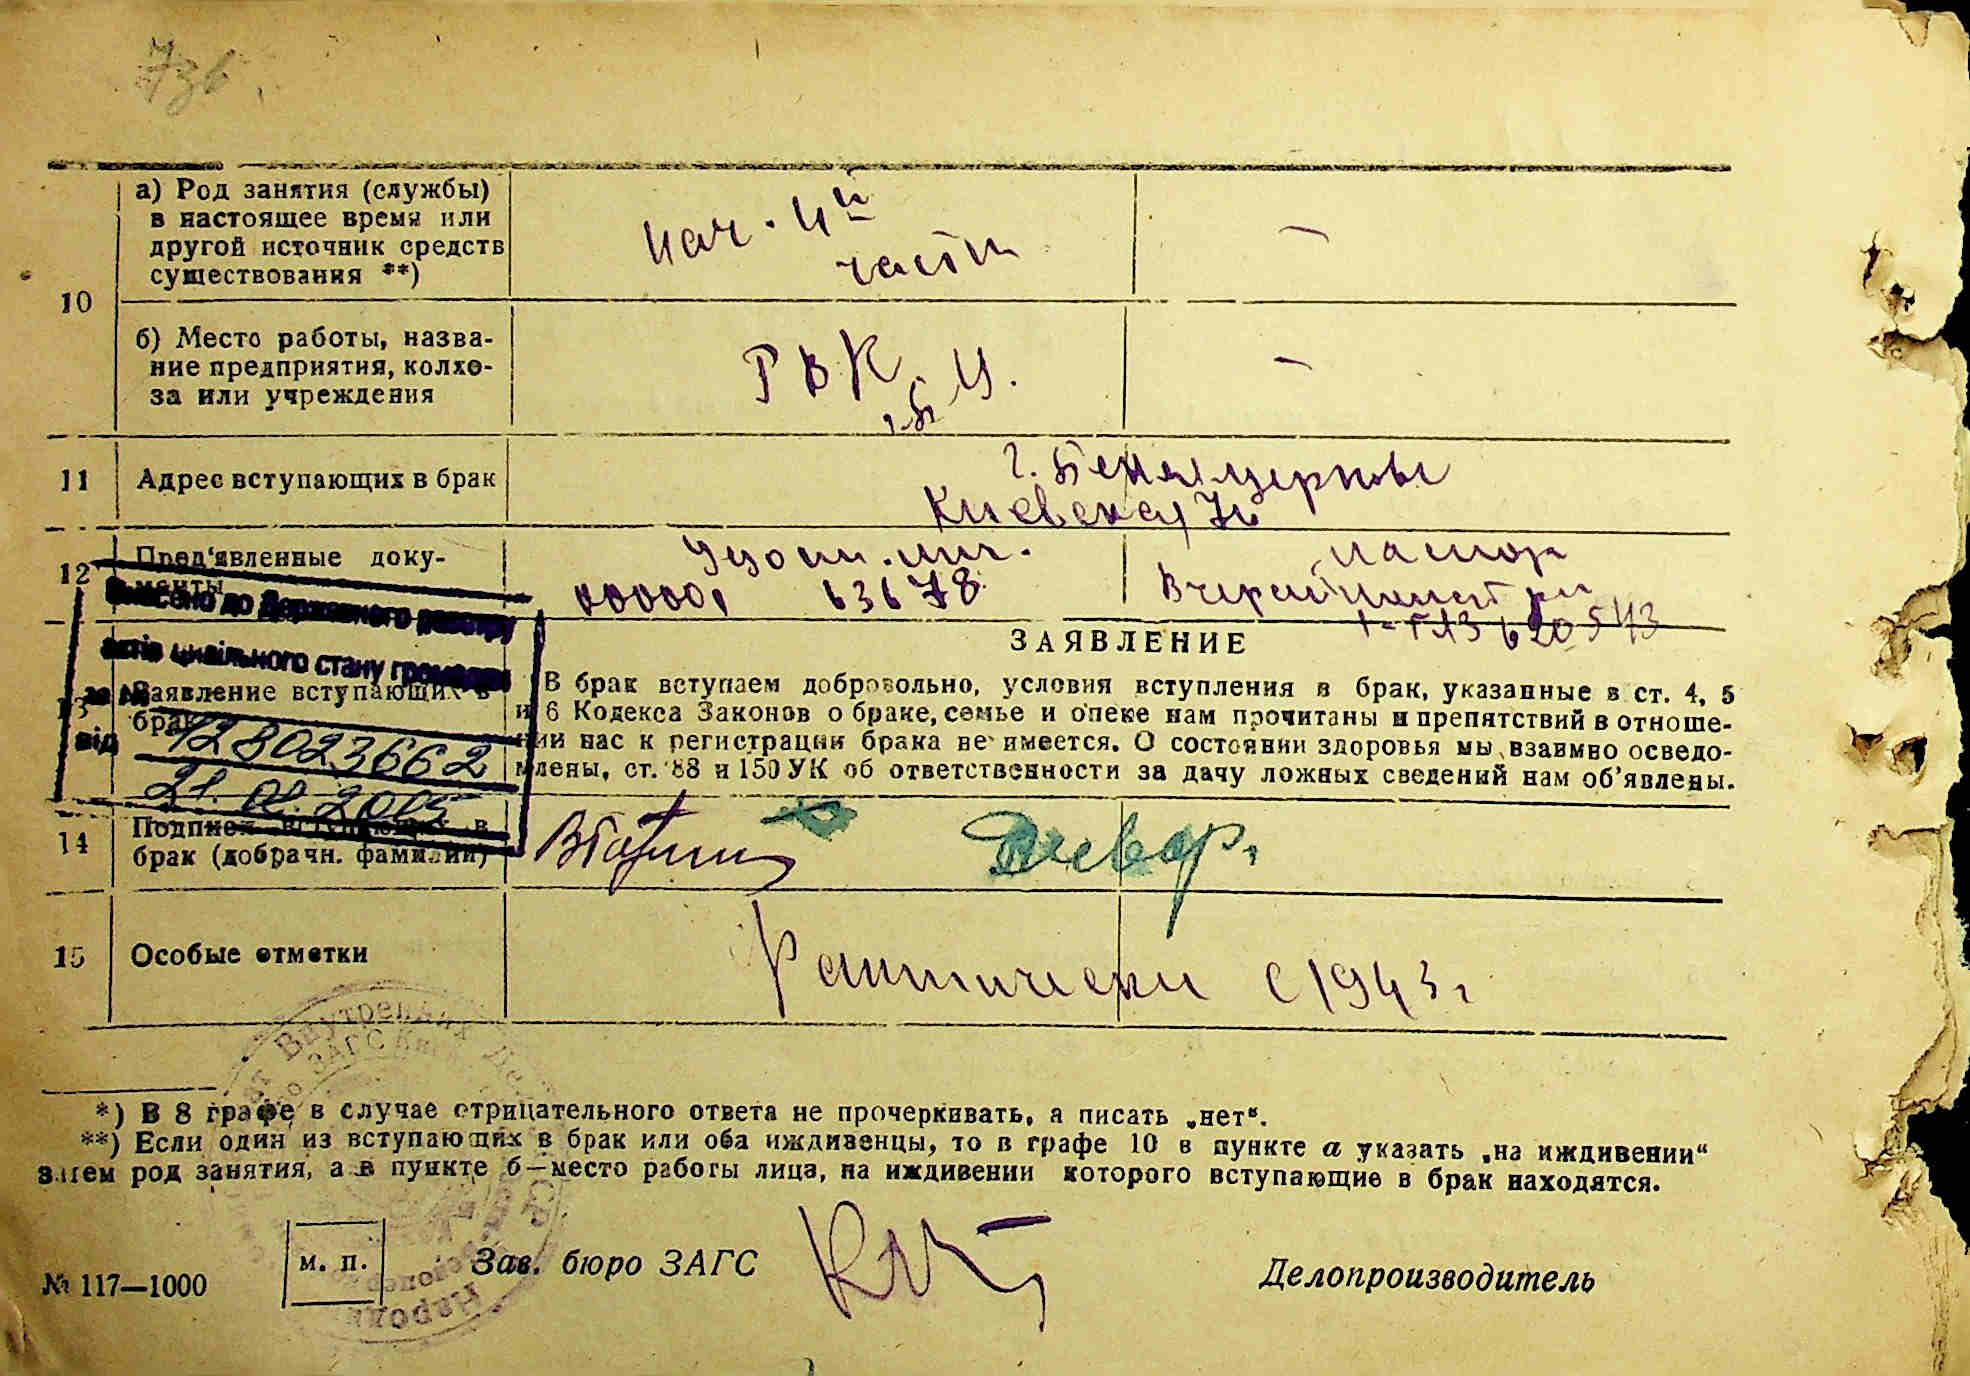 736
10
а) Род занятия (службы)
в настоящее время или
другой источник средств
существования **)
нач. 4й
части
—
б) Место работы, назва-
ние предприятия, колхо-
за или учреждения
РВК
г. Б Ц.
—
11
Адрес вступающих в брак
г. Белая церковь
Киевская 76
12
Пред'явленные доку-
менты
Удост. лич.
63678
паспор
620543
Внесено до Державного реєстру
актів цивільного стану громадян
за №
від
42802366 2
21. 02. 2005
13
Заявление вступающих в
брак
ЗАЯВЛЕНИЕ
В брак вступаем добровольно, условия вступления в брак, указанные в ст. 4, 5
и 6 Кодекса Законов о браке, семье и опеке нам прочитаны и препятствий в отноше-
нии нас к регистрации брака не имеется. О состоянии здоровья мы взаимно осведо-
млены, ст. 88 и 150 УК об ответственности за дачу ложных сведений нам об'явлены.
14
Подписи вступающих в
брак (добрачн. фамилии)
15
Особые отметки
Фактически с 1943 г
*) В 8 графе в случае отрицательного ответа не прочеркивать, а писать „нет“.
**) Если один из вступающих в брак или оба иждивенцы, то в графе 10 в пункте а указать „на иждивении“
затем род занятия, а в пункте б—место работы лица, на иждивении которого вступающие в брак находятся.
№ 117—1000
м. п.
Зав. бюро ЗАГС
Делопроизводитель
Внутренних
ЗАГС